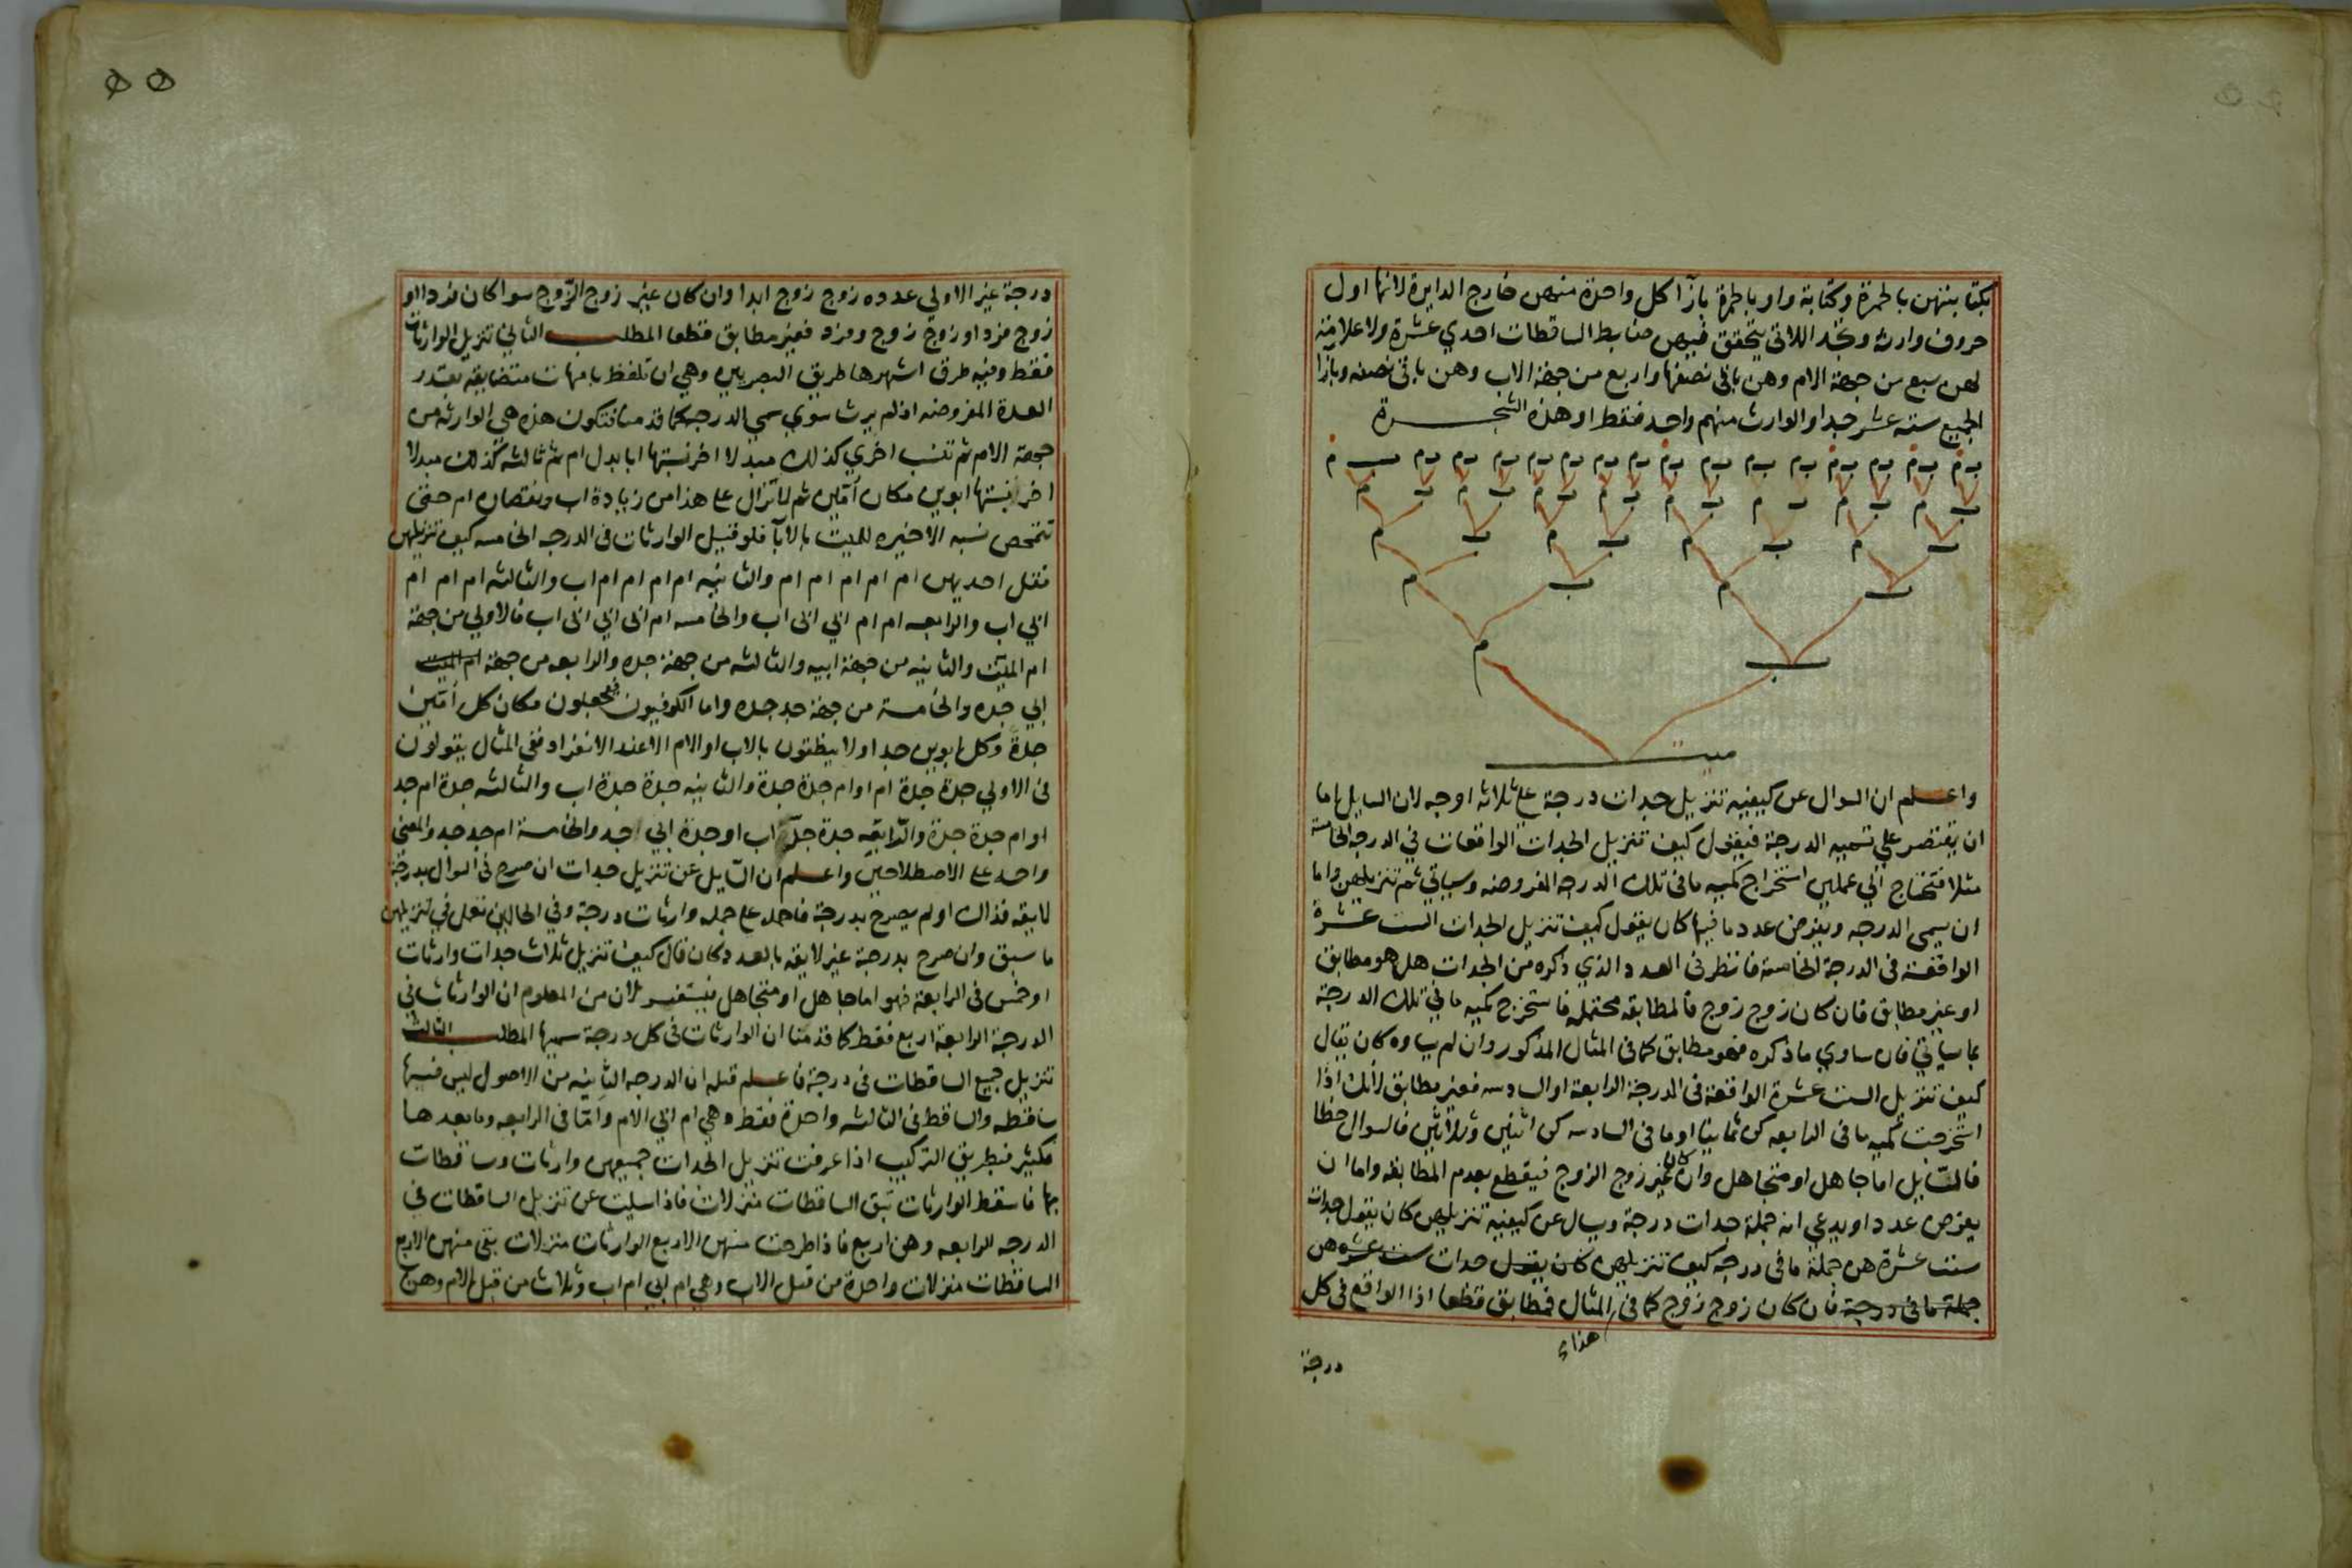 بكتابتهن بالحمرة وكتابة واو بالحمرة بازآ كل واحدة منهن خارج الدايرة لانها اول
حروف وارثه وتجد اللاتي يتحقق فيهن ضابط الساقطات احدي عشرة ولا علامة
لهن سبع من جهة الام وهن باقي نصفها واربع من جهة الاب وهن باقي نصفه وبازا
الجميع سته عشر جدا والوارث منهم واحد فقط وهذه الشجرة
ب م ب م ب م ب م ب م ب م ب م ب م ب م ب م ب م ب م ب م ب م ب م ب م
ب م ب م ب م ب م ب م ب م ب م ب م
ب م ب م ب م ب م
ب م ب م
ب م
ميت
واعلم ان السوال عن كيفيه تنزيل جدات درجة علي ثلاثه اوجه لان السايل اما
ان يقتصر علي تسميه الدرجة فيقول كيف تنزيل الجدات الواقعات في الدرجه الخامسة
مثلا فتحتاج الي عملين استخراج كميه ما في تلك الدرجه المفروضه وسياتي ثم تنزيلهن واما
ان يسمى الدرجه ويفرض عدد ما فيها كان يقول كيف تنزيل الجدات الست عشرة
الواقعة في الدرجة الخامسة فانظر في العدد الذي ذكره من الجدات هل هو مطابق
او غير مطابق فان كان زوج زوج فالمطابقه محتمله فاستخرج كميه ما في تلك الدرجة
بما سياتي فان ساوي ما ذكره فهو مطابق كما في المثال المذكور وان لم يساوه كان يقال
كيف تنزيل الست عشرة الواقعة في الدرجة الرابعة او السادسه فغير مطابق لانك اذا
استخرجت كميه ما في الرابعه كن ثمانيا او ما في السادسه كن اثنين وثلاثين فالسوال خطا
فالسّايل اما جاهل او متجاهل وان كان غير زوج الزوج فيقطع بعدم المطابقه واما ان
يفرض عددا ويدعي انه جملة جدات درجة ويسال عن كيفية تنزيلهن كان يقول جدات
ست عشرة هن جملة ما في درجه كيف تنزيلهن كان يقول جدات ست عشره هن
جملة ما في درجة فان كان زوج زوج كما في هذا المثال فمطابق قطعا اذا الواقع في كل
درجة
٥٥
درجة غير الاولي عدده زوج زوج ابدا وان كان غير زوج الزّوج سوا كان فردا او
زوج فرد او زوج زوج وفرد فغير مطابق قطعا المطلب الثاني تنزيل الوارثات
فقط وفيه طرق اشهرها طريق البصريين وهي ان تلفظ بامهات متضايقه بقدر
العدة المفروضه اذ لم يرث سوي سمي الدرجه كما قدمنا فتكون هذه هي الوارثه من
جهة الام ثم تنسب اخري كذلك مبدلا اخر نسبتها ابا بدل ام ثم ثالثه كذلك مبدلا
اخر نسبتها ابوين مكان اُمّين ثم لا تزال علي هذا من زيادة اب ونقصان ام حتى
تتمحص نسبه الاخيره للميت بالآبا فلو قيل الوارثات في الدرجه الخامسه كيف تنزيلهن
فقل احديهن ام ام ام ام ام والثانيه ام ام ام ام اب والثالثه ام ام ام
ابي اب والرابعه ام ام ابي ابي اب والخامسه ام ابي ابي ابي اب فالاولي من جهة
ام الميت والثانيه من جهة ابيه والثالثه من جهة جده والرابعه من جهة ام الميت
ابي جده والخامسة من جهة جد جده واما الكوفيون فيجعلون مكان كل اُمّين
جدة وكل ابوين جدا ولا ينطقون بالاب او الام الا عند الانفراد ففي المثال يقولون
في الاولي جدة جدة ام او ام جدة جدة والثانيه جدة جدة اب والثالثه جدة ام جد
او ام جدة جدة والرّابعه جدة جدّ اب او جدة ابي جد والخامسة ام جد جد والمعنى
واحد على الاصطلاحين واعلم ان السّايل عن تنزيل جدات ان صرح في السوال بدرجة
لايقه فذاك او لم يصرح بدرجة فاحمله علي جمله وارثات درجة وفي الحالين تعمل في تنزيلهن
ما سبق وان صرح بدرجة غير لايقه بالعدد كان قال كيف تنزيل ثلاث جدات وارثات
او خمس في الرابعة فهو اما جاهل او متجاهل فيستفسر لان من المعلوم ان الوارثات في
الدرجة الرابعة اربع فقط كما قدمنا ان الوارثات في كل درجة سميها المطلب الثالث
تنزيل جميع الساقطات في درجة فاعلم قبله ان الدرجه الثانيه من الاصول ليس فيها
ساقطه والساقط في الثالثه واحدة فقط وهي ام ابي الام وامّا في الرابعه وما بعدها
فكثير فبطريق التركيب اذا عرفت تنزيل الجدات جميعهن وارثات وساقطات
بها فاسقط الوارثات تبق الساقطات منزلات فاذا سيلت عن تنزيل الساقطات في
الدرجه الرابعه وهن اربع فاذا طرحت منهن الاربع الوارثات منزلات بقي منهن الاربع
الساقطات منزلات واحدة من قبل الاب وهي ام ابي ام اب وثلاث من قبل الام وهن